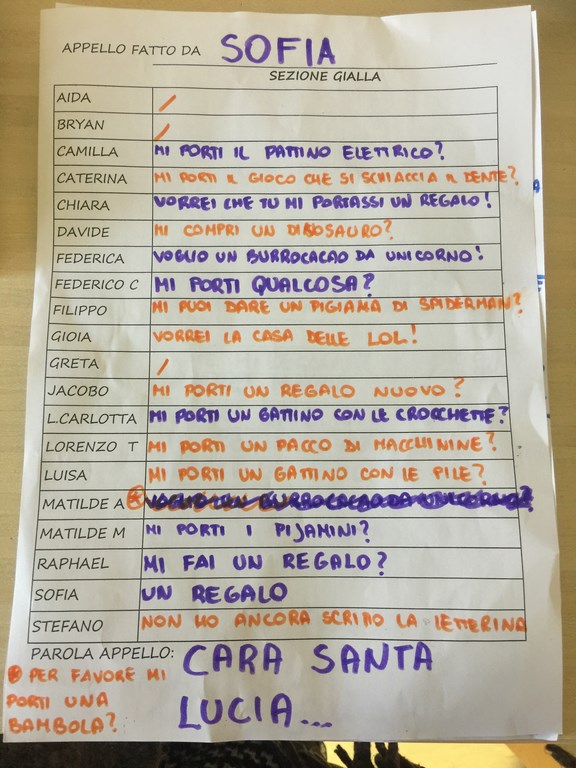 APPELLO FATTO DA SOFIA
SEZIONE GIALLA
AIDA /
BRYAN /
CAMILLA MI PORTI IL PATTINO ELETTRICO?
CATERINA MI PORTI IL GIOCO CHE SI SCHIACCIA IL DENTE?
CHIARA VORREI CHE TU MI PORTASSI UN REGALO!
DAVIDE MI COMPRI UN DINOSAURO?
FEDERICA VOGLIO UN BURROCACAO DA UNICORNO!
FEDERICO C MI PORTI QUALCOSA?
FILIPPO MI PUOI DARE UN PIGIAMA DI SPIDERMAN?
GIOIA VORREI LA CASA DELLE LOL!
GRETA /
JACOBO MI PORTI UN REGALO NUOVO?
L.CARLOTTA MI PORTI UN GATTINO CON LE CROCCHETTE?
LORENZO T MI PORTI UN PACCO DI MACCHININE?
LUISA MI PORTI UN GATTINO CON LE PILE?
MATILDE A VOGLIO UN BURROCACAO DA UNICORNO?
MATILDE M MI PORTI I PIJAMINI?
RAPHAEL MI FAI UN REGALO?
SOFIA UN REGALO
STEFANO NON HO ANCORA SCRITTO LA LETTERINA
PAROLA APPELLO: CARA SANTA
LUCIA...
PER FAVORE MI
PORTI UNA
BAMBOLA?